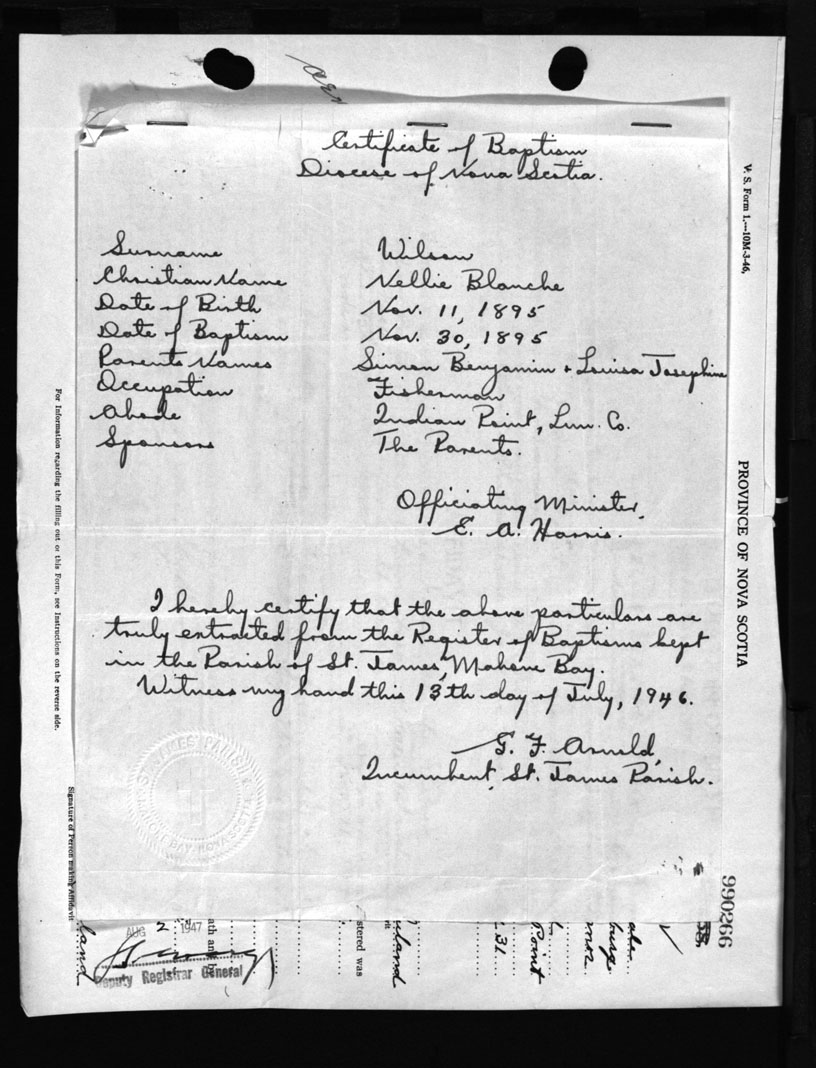 Certificate of Baptism
Diocese of Nova Scotia.
Surname Wilson
Christian Name Nellie Blanche
Date of Birth Nov. 11, 1895
Date of Baptism Nov. 30, 1895
Parents Names Simon Benjamin + Louisa Josephine
Occupation Fisherman
Abode Indian Point, Lun. Co.
Sponsors The Parents.
Officiating Minister,
E. A. Harris.
I hereby certify that the above particulars are
truly extracted from the Register of Baptisms kept
in the Parish of St. James, Mahone Bay.
Witness my hand this 13th day of July, 1946.
G. F. Arnold,
Incumbent, St. James Parish.
ST. JAMES PARISH
MAHONE BAY, NOVA SCOTIA
V. S. Form 1.—10M-3-46.
PROVINCE OF NOVA SCOTIA
For Information regarding the filling out of this Form, see Instructions on the reverse side.
Signature of Person making Affidavit
990266
AUG 2 1947
Deputy Registrar General
ath and
stered was
Point
31